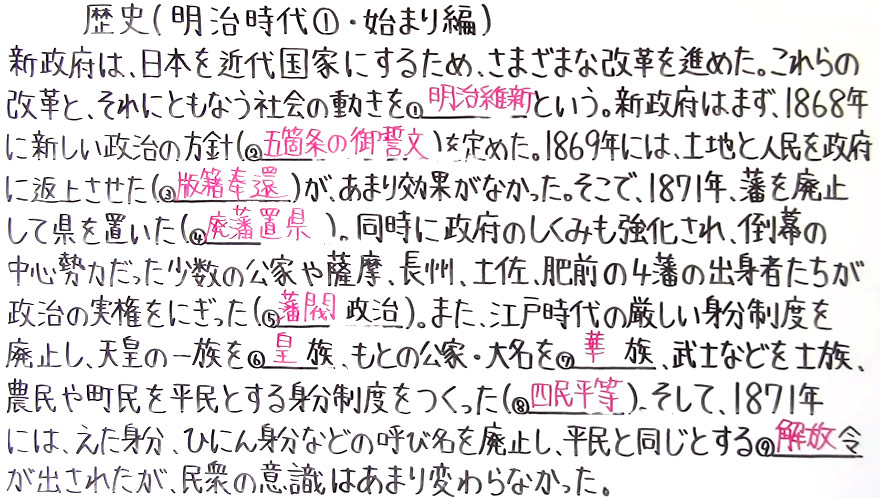 歴史(明治時代①・始まり編)
新政府は、日本を近代国家にするため、さまざまな改革を進めた。これらの
改革と、それにともなう社会の動きを①明治維新という。新政府はまず、1868年
に新しい政治の方針(②五箇条の御誓文)を定めた。1869年には、土地と人民を政府
に返上させた(③版籍奉還)が、あまり効果がなかった。そこで、1871年、藩を廃止
して県を置いた(④廃藩置県)。同時に政府のしくみも強化され、倒幕の
中心勢力だった少数の公家や薩摩、長州、土佐、肥前の4藩の出身者たちが
政治の実権をにぎった(⑤藩閥政治)。また、江戸時代の厳しい身分制度を
廃止し、天皇の一族を⑥皇族、もとの公家・大名を⑦華族、武士などを士族、
農民や町民を平民とする身分制度をつくった(⑧四民平等)。そして、1871年
には、えた身分、ひにん身分などの呼び名を廃止し、平民と同じとする⑨解放令
が出されたが、民衆の意識はあまり変わらなかった。